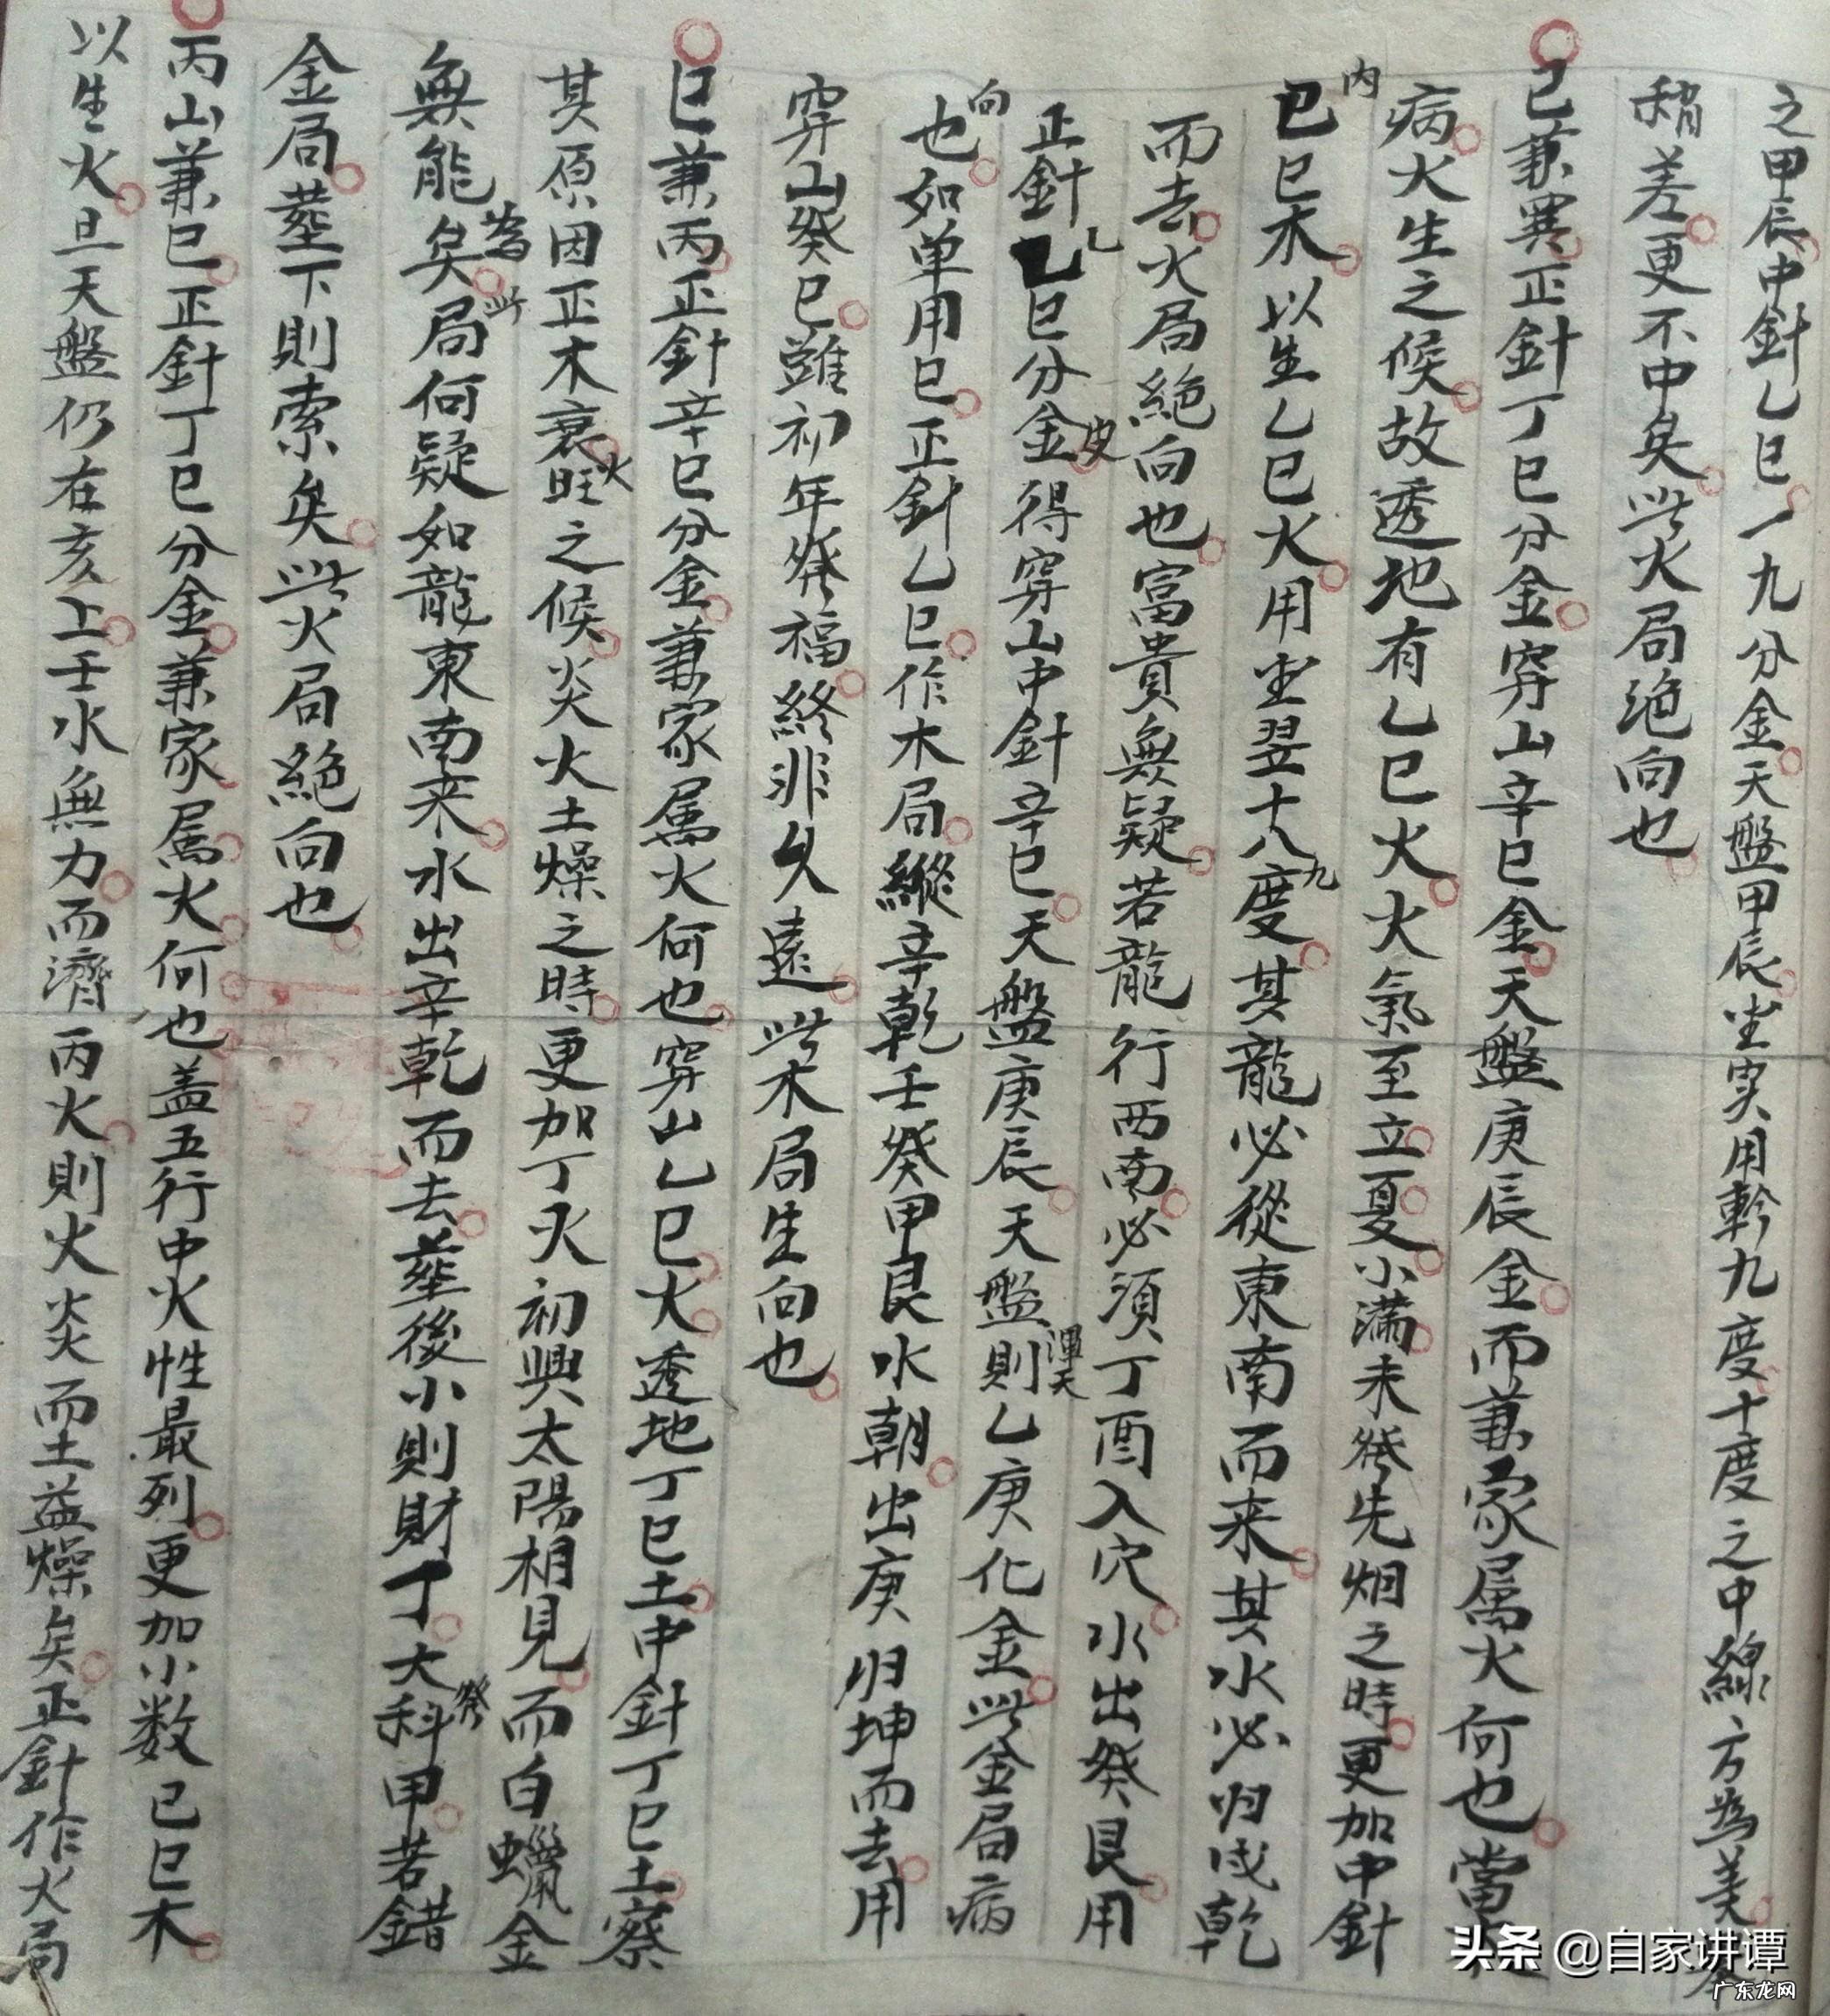 之甲辰中針乙巳一九分金天盤甲辰坐实用斡九度十度之中線方為美
稍差更不中矣此火局绝向也
巳兼巽正針丁巳分金穿山辛巳金天盤庚辰金而兼家属火何也當
病火生之候故透地有乙巳火火氣至立夏小满未發先烟之時更加中針
内
巳巳木以生乙巳火用坐翌十八度其龍必從東南而来其水必归戌乾
九
而去火局絶向也富貴無疑若龍行西南必須丁酉入穴水出癸艮用
正針乙巳分金得穿山中針辛巳天盤庚辰天盤則乙庚化金此金局病
乙
皮
渾天
向
也如单用巳正針乙巳作木局縱辛乾壬癸甲艮水朝出庚归坤而去用
穿山癸巳雖初年發福終非久遠此木局生向也
巳兼丙正針辛巳分金兼家属火何也穿山乙巳火透地丁巳土中針丁巳土察
其原因正木衰旺之候炎火土燥之時更加丁火初興太陽相見而白蠟金
火
無能矣局何疑如龍東南来水出辛乾而去塟後小則財丁大科甲若錯
為
此
發
金局塟下則索矣此火局絶向也
丙山兼巳正針丁巳分金兼家属火何也盖五行中火性最列更加小数己巳木
以生火旦天盤仍在亥上壬水無力而濟丙火則火炎而土益燥矣正針作火局
头条 @自家讲谭
广东龙网